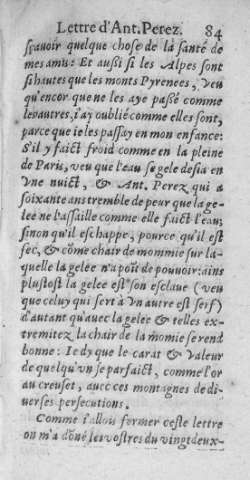 Lettre d'Ant. Perez. 84
sçavoir quelque chose de la santé de
mes amis: Et aussi si les Alpes sont
si hautes que les monts Pyrenees, veu
qu'encor que ne les aye passé comme
les autres, i'ay oublié comme elles sont,
parce que ie les passay en mon enfance:
S'il y faict froid comme en la pleine
de Paris, veu que l'eau se gele desia en
vne nuict, & Ant. Perez qui a
soixante ans tremble de peur que la ge-
lee ne l'assaille comme elle faict l'eau;
sinon qu'il eschappe, pource qu'il est
sec, & cõme chair de mommie sur la-
quelle la gelee n'a poĩt de pouuoir: ains
plustost la gelee est son esclaue (veu
que celuy qui sert à vn autre est serf)
d'autant qu'auec la gelee & telles ex-
tremitez la chair de la momie se rend
bonne: Ie dy que le carat & valeur
de quelqu'vn se parfaict, comme l'or
au creuset, auec ces montagnes de di-
uerses persecutions.
Comme i'allois fermer ceste lettre
on m'a dõné les vostres du vingt deux-